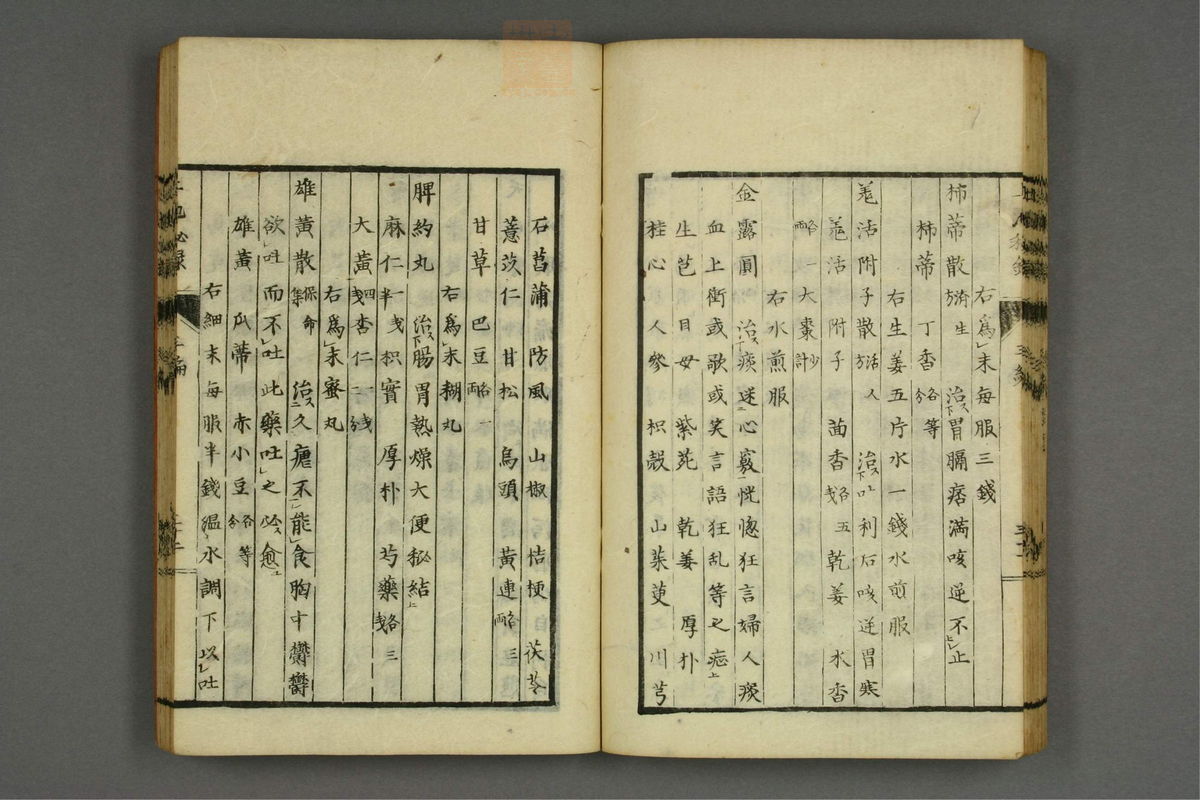 右爲末每服三錢
柿蔕散 済生方 治胃膈痞滿咳逆不止
柿蔕 丁香 各等分
右生姜五片水一錢水煎服
羗活附子散 活人方 治吐利后咳逆胃寒
羗活 附子 茴香 各五戔 乾姜 水香
各一兩 大棗 少許
右水煎服
金露圓 治痰迷心竅恍惚狂言婦人痰
血上衝或歌或笑言語狂乱等之症
生芑 貝母 紫菀 乾姜 厚朴
桂心 人參 枳殼 山茱萸 川芎
石菖蒲 防風 山椒 桔梗 茯苓
薏苡仁 甘松 烏頭 黃連 各三兩
甘草 巴豆 各一兩
右爲末糊丸
脾約丸 治腸胃熱燥大便秘結
麻仁 一戔半 枳實 厚朴 芍藥 各三戔
大黃 四戔 杏仁 一戔二分
右爲末蜜丸
雄黃散 保命集 治久瘧不能食胸中鬱鬱
欲吐而不吐此藥吐之必愈
雄黃 瓜蔕 赤小豆 各等分
右細末每服半錢溫水調下以吐